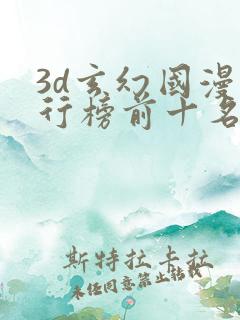 3d玄幻国漫
行榜前十名
斯特拉卡拉
未经同意禁止转载